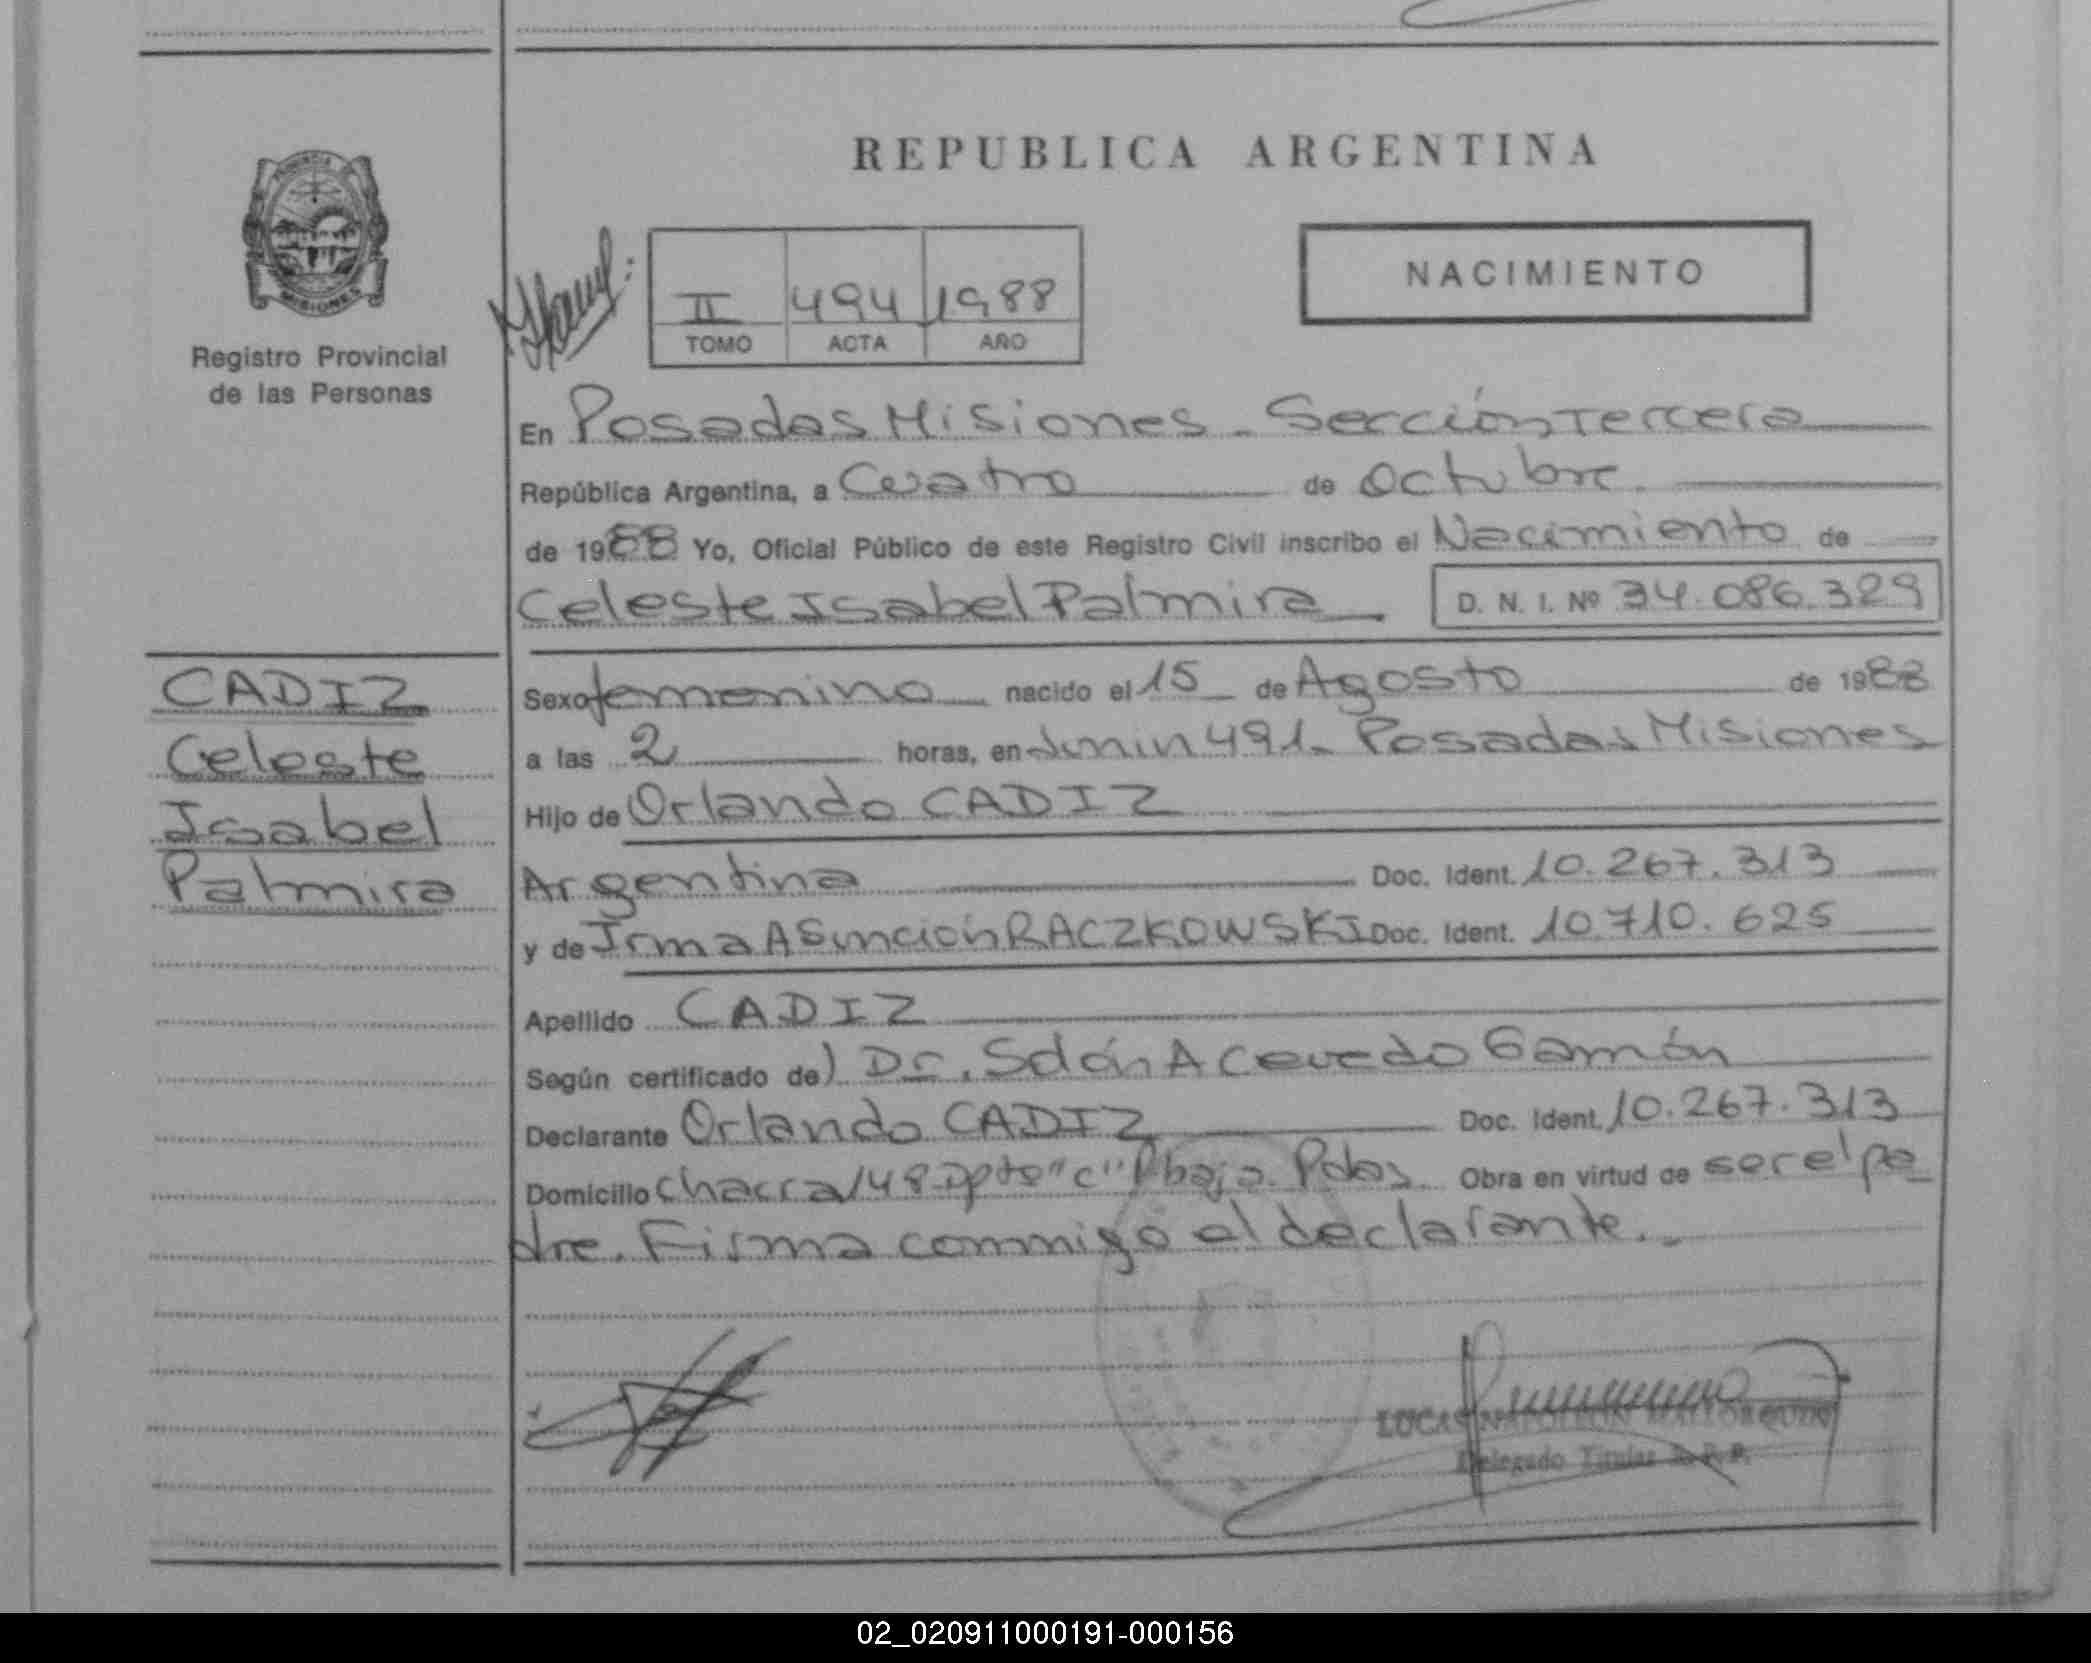 REPUBLICA ARGENTINA
PROVINCIA
MISIONES
Registro Provincial
de las Personas
II 494 1988
TOMO ACTA AÑO
NACIMIENTO
En Posadas Misiones - Sección Tercera
República Argentina, a Cuatro de Octubre.
de 1988 Yo, Oficial Público de este Registro Civil inscribo el Nacimiento de
Celeste Isabel Palmira D. N. I. Nº 34.086.329
CADIZ
Celeste
Isabel
Palmira
Sexo femenino nacido el 15 de Agosto de 1988
a las 2 horas, en Junin 491. Posadas Misiones
Hijo de Orlando CADIZ
Argentina Doc. Ident. 10.267.313
y de Irma ASunción RACZKOWSKI Doc. Ident. 10.710.625
Apellido CADIZ
Según certificado de) Dr. Solón Acevedo Gamón
Declarante Orlando CADIZ Doc. Ident. 10.267.313
Domicilio chacra 148 Dpto "c" P baja. Pdas. Obra en virtud de ser el pa
dre. Firma conmigo el declarante.-
LUCAS NAPOLEON MALLORQUIN
Delegado Titular R.P.P.
02_020911000191-000156